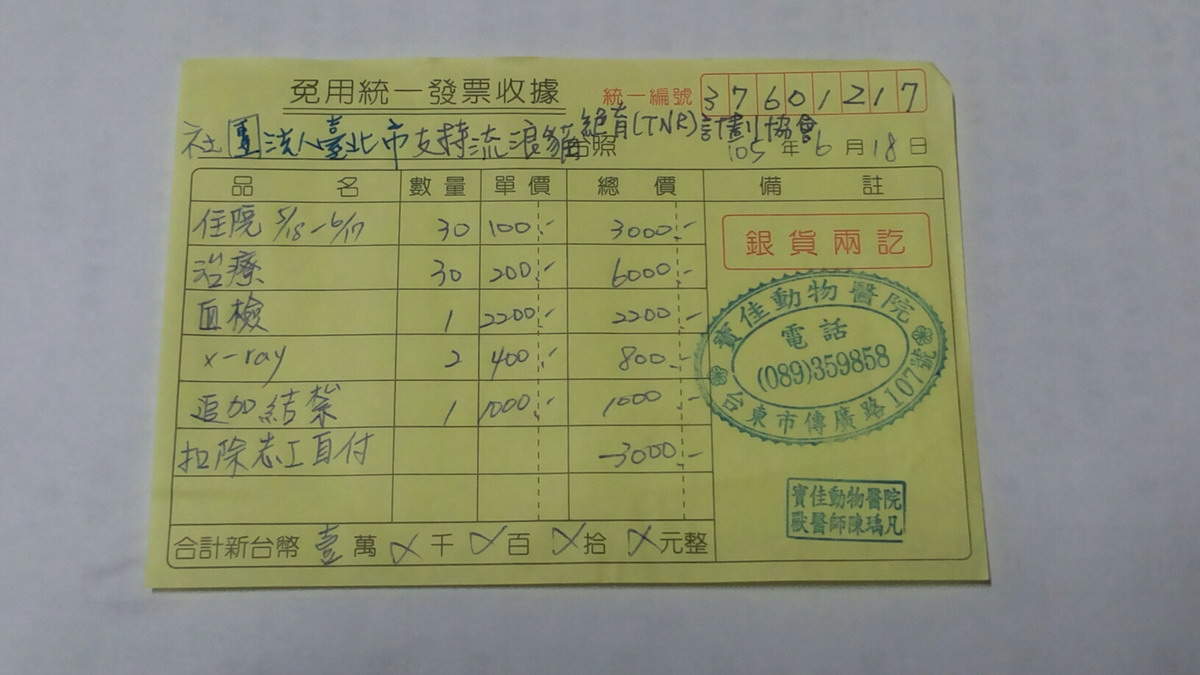 免用統一發票收據
統一編號 37601217
社團法人臺北市支持流浪貓絕育(TNR)計劃協會 台照
105年6月18日
品名 數量 單價 總價 備註
住院 5/18-6/17 30 100.- 3000.-
治療 30 200.- 6000.-
血檢 1 2200.- 2200.-
x-ray 2 400.- 800.-
追加結紮 1 1000.- 1000.-
扣除志工自付 -3000.-
合計新台幣 壹萬 X千 X百 X拾 X元整
銀貨兩訖
寶佳動物醫院
電話
(089)359858
台東市傳廣路107號
寶佳動物醫院
獸醫師陳瑀凡